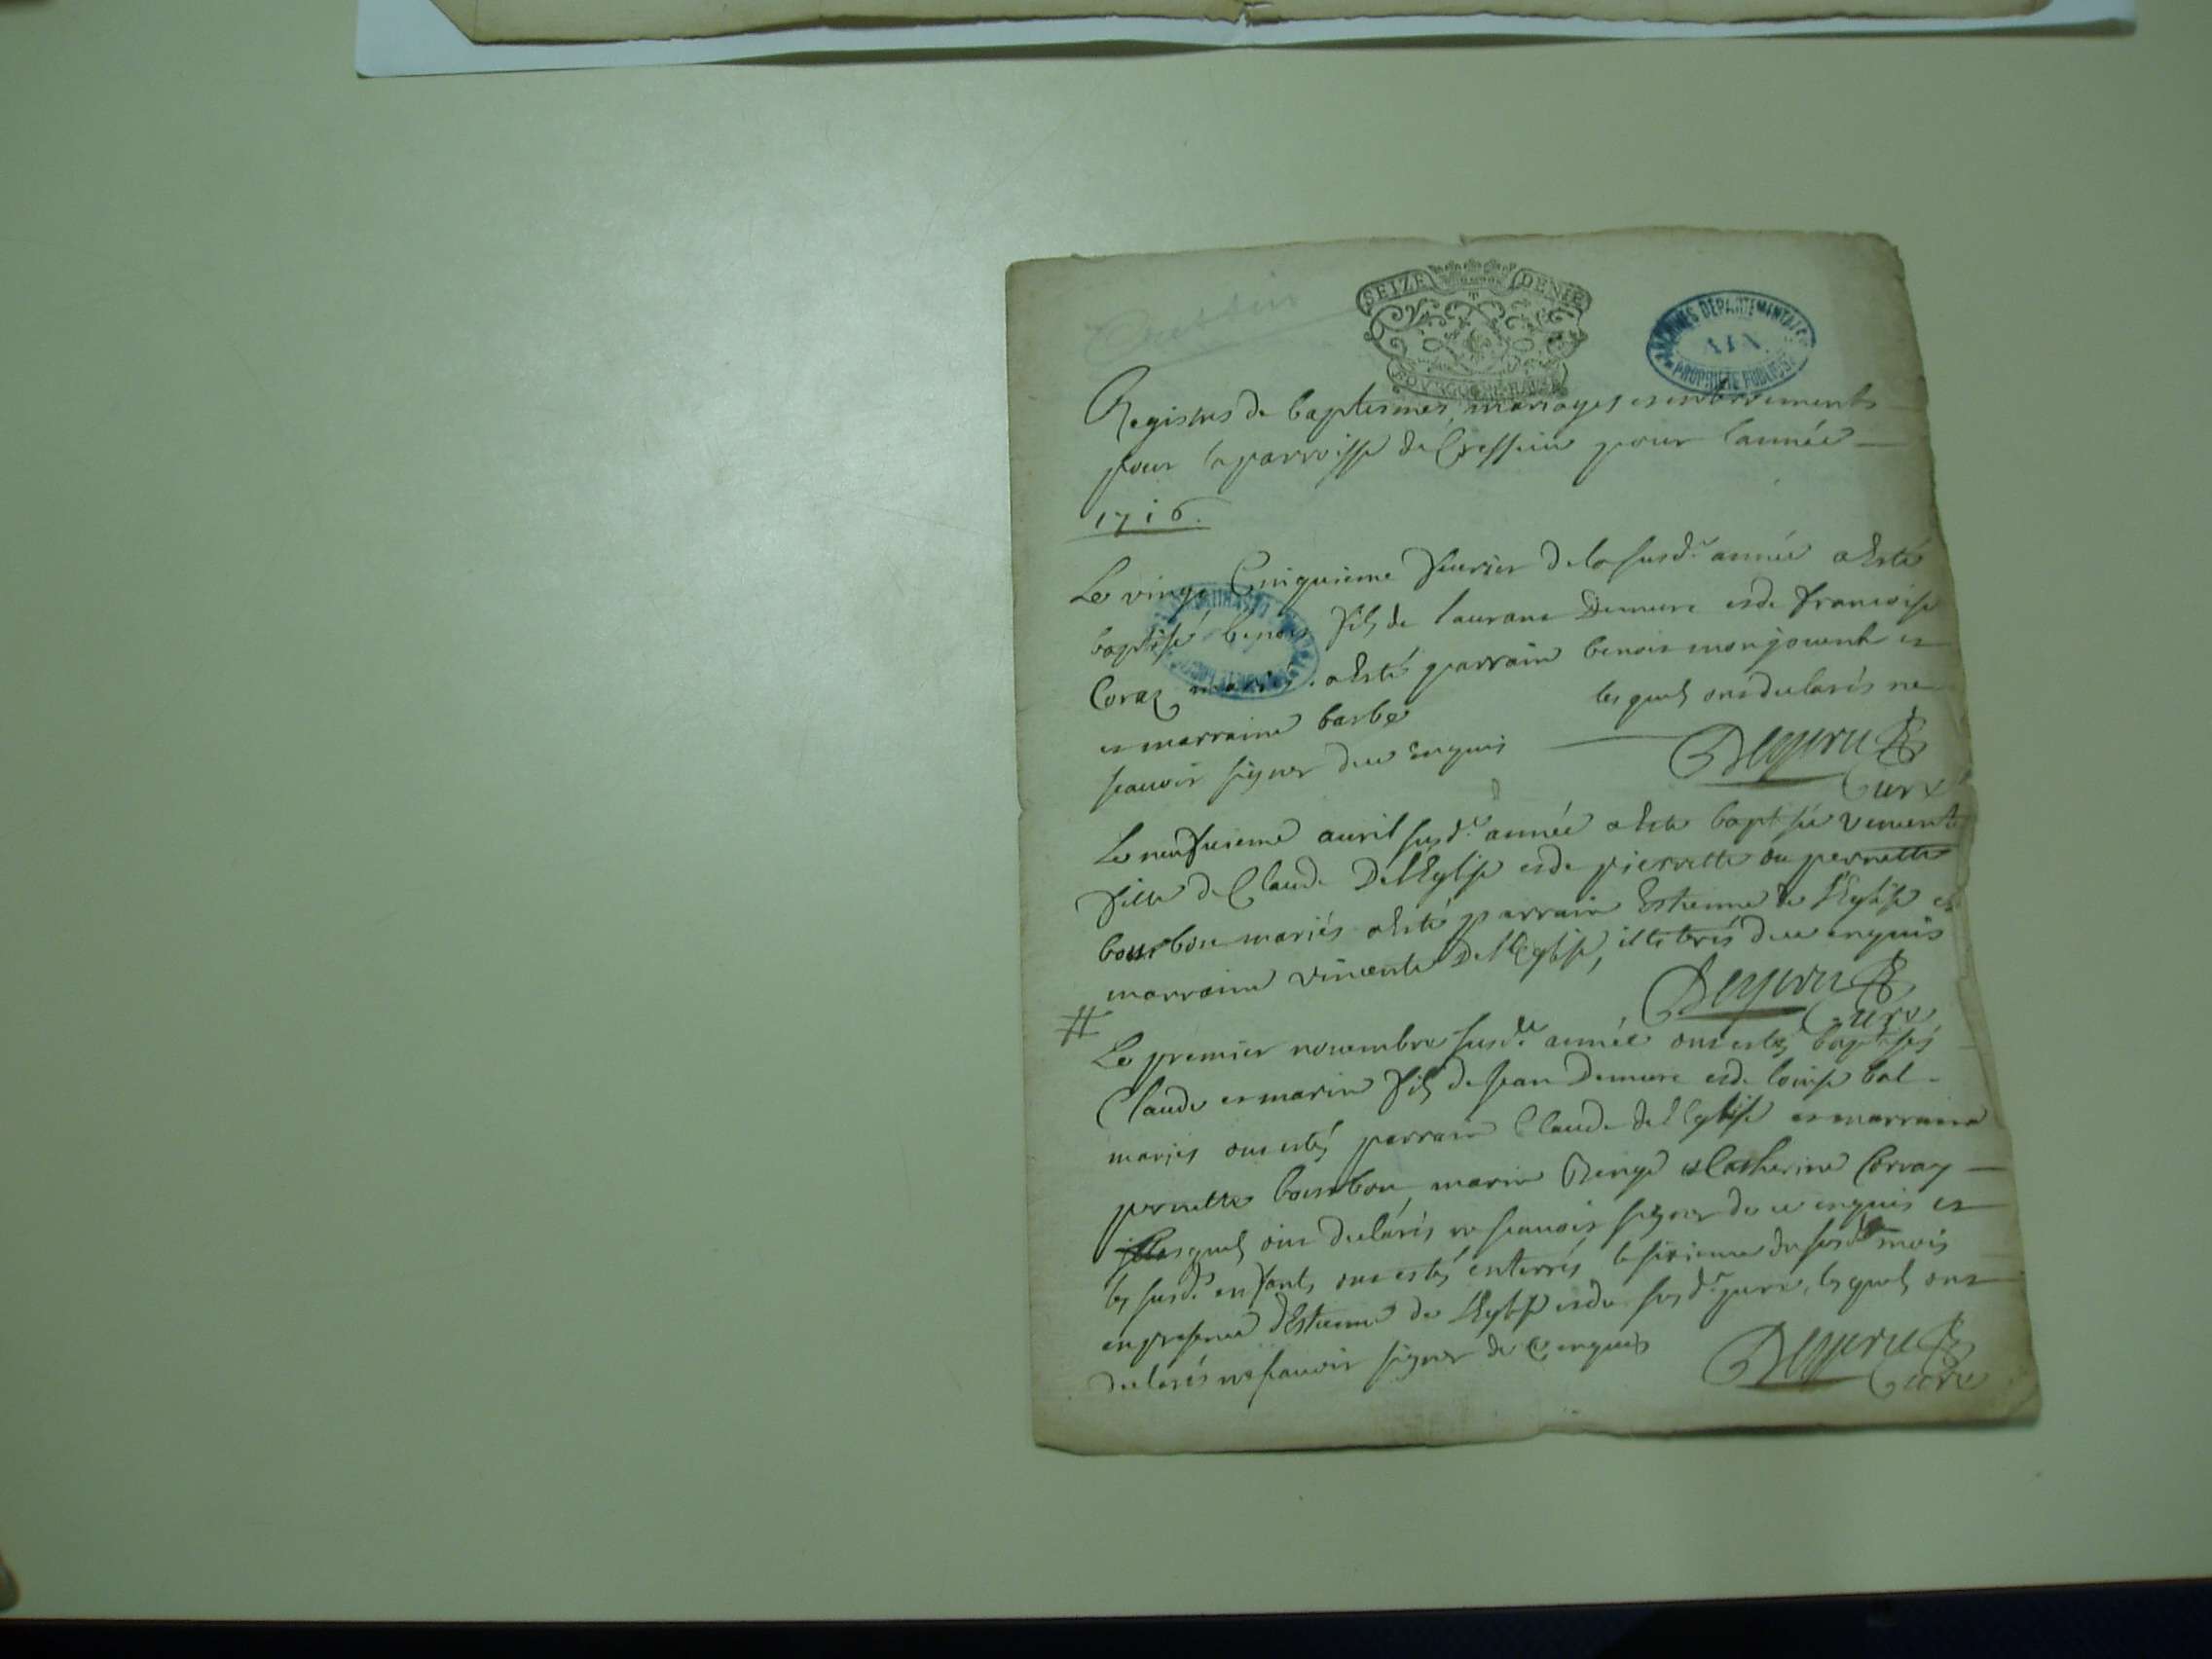 Cressin
SEIZE DENIE
ARCHIVES DEPARTEMENTALES
AIN
PROPRIETE PUBLIQUE
Registres de baptesmes, mariages et enterrements
pour la parroisse de Cressieu pour l'année
1716.
Le vingt Cinquieme feurier de la susd.e année a Esté
baptisé benois fils de laurans Demure et de francoise
Coraz mariés. a Esté parrain benois monjouent et
et marraine barbe lesquels ont declarés ne
scauoir signer de ce enquis
Curé
Le neufuieme auril susd.e année a Esté baptisée vincente
fille de Claude De l'Eglise et de pierrette ou pernette
bourbon mariés a Esté parrain Estienne de l'Eglise et
marraine vincente De l'Eglise, illiterés de ce enquis
Curé
#
Le premier nouembre susd.e année ont estés baptisés
Claude et marin fils de Jean Demure et de louise bal
mariés ont estés parrain Claude de l'Eglise et marraine
pernette bourbon, marin et Catherine
lesquels ont declarés ne scauoir signer de ce enquis et
les susd.s enfants ont estés enterrés le sixieme du susd. mois
en presence d'Estienne de l'Eglise et du susd. pere, lesquels ont
declarés ne scauoir signer de ce enquis
Curé